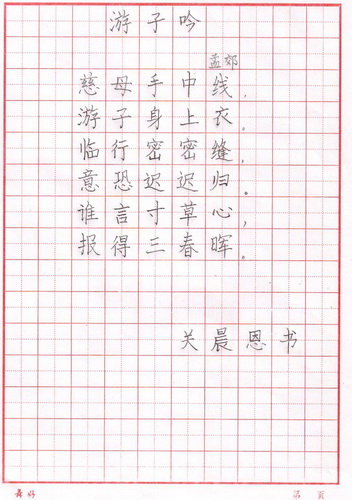 游子吟
孟郊
慈母手中线，
游子身上衣。
临行密密缝，
意恐迟迟归。
谁言寸草心，
报得三春晖。
关晨恩书
第 页